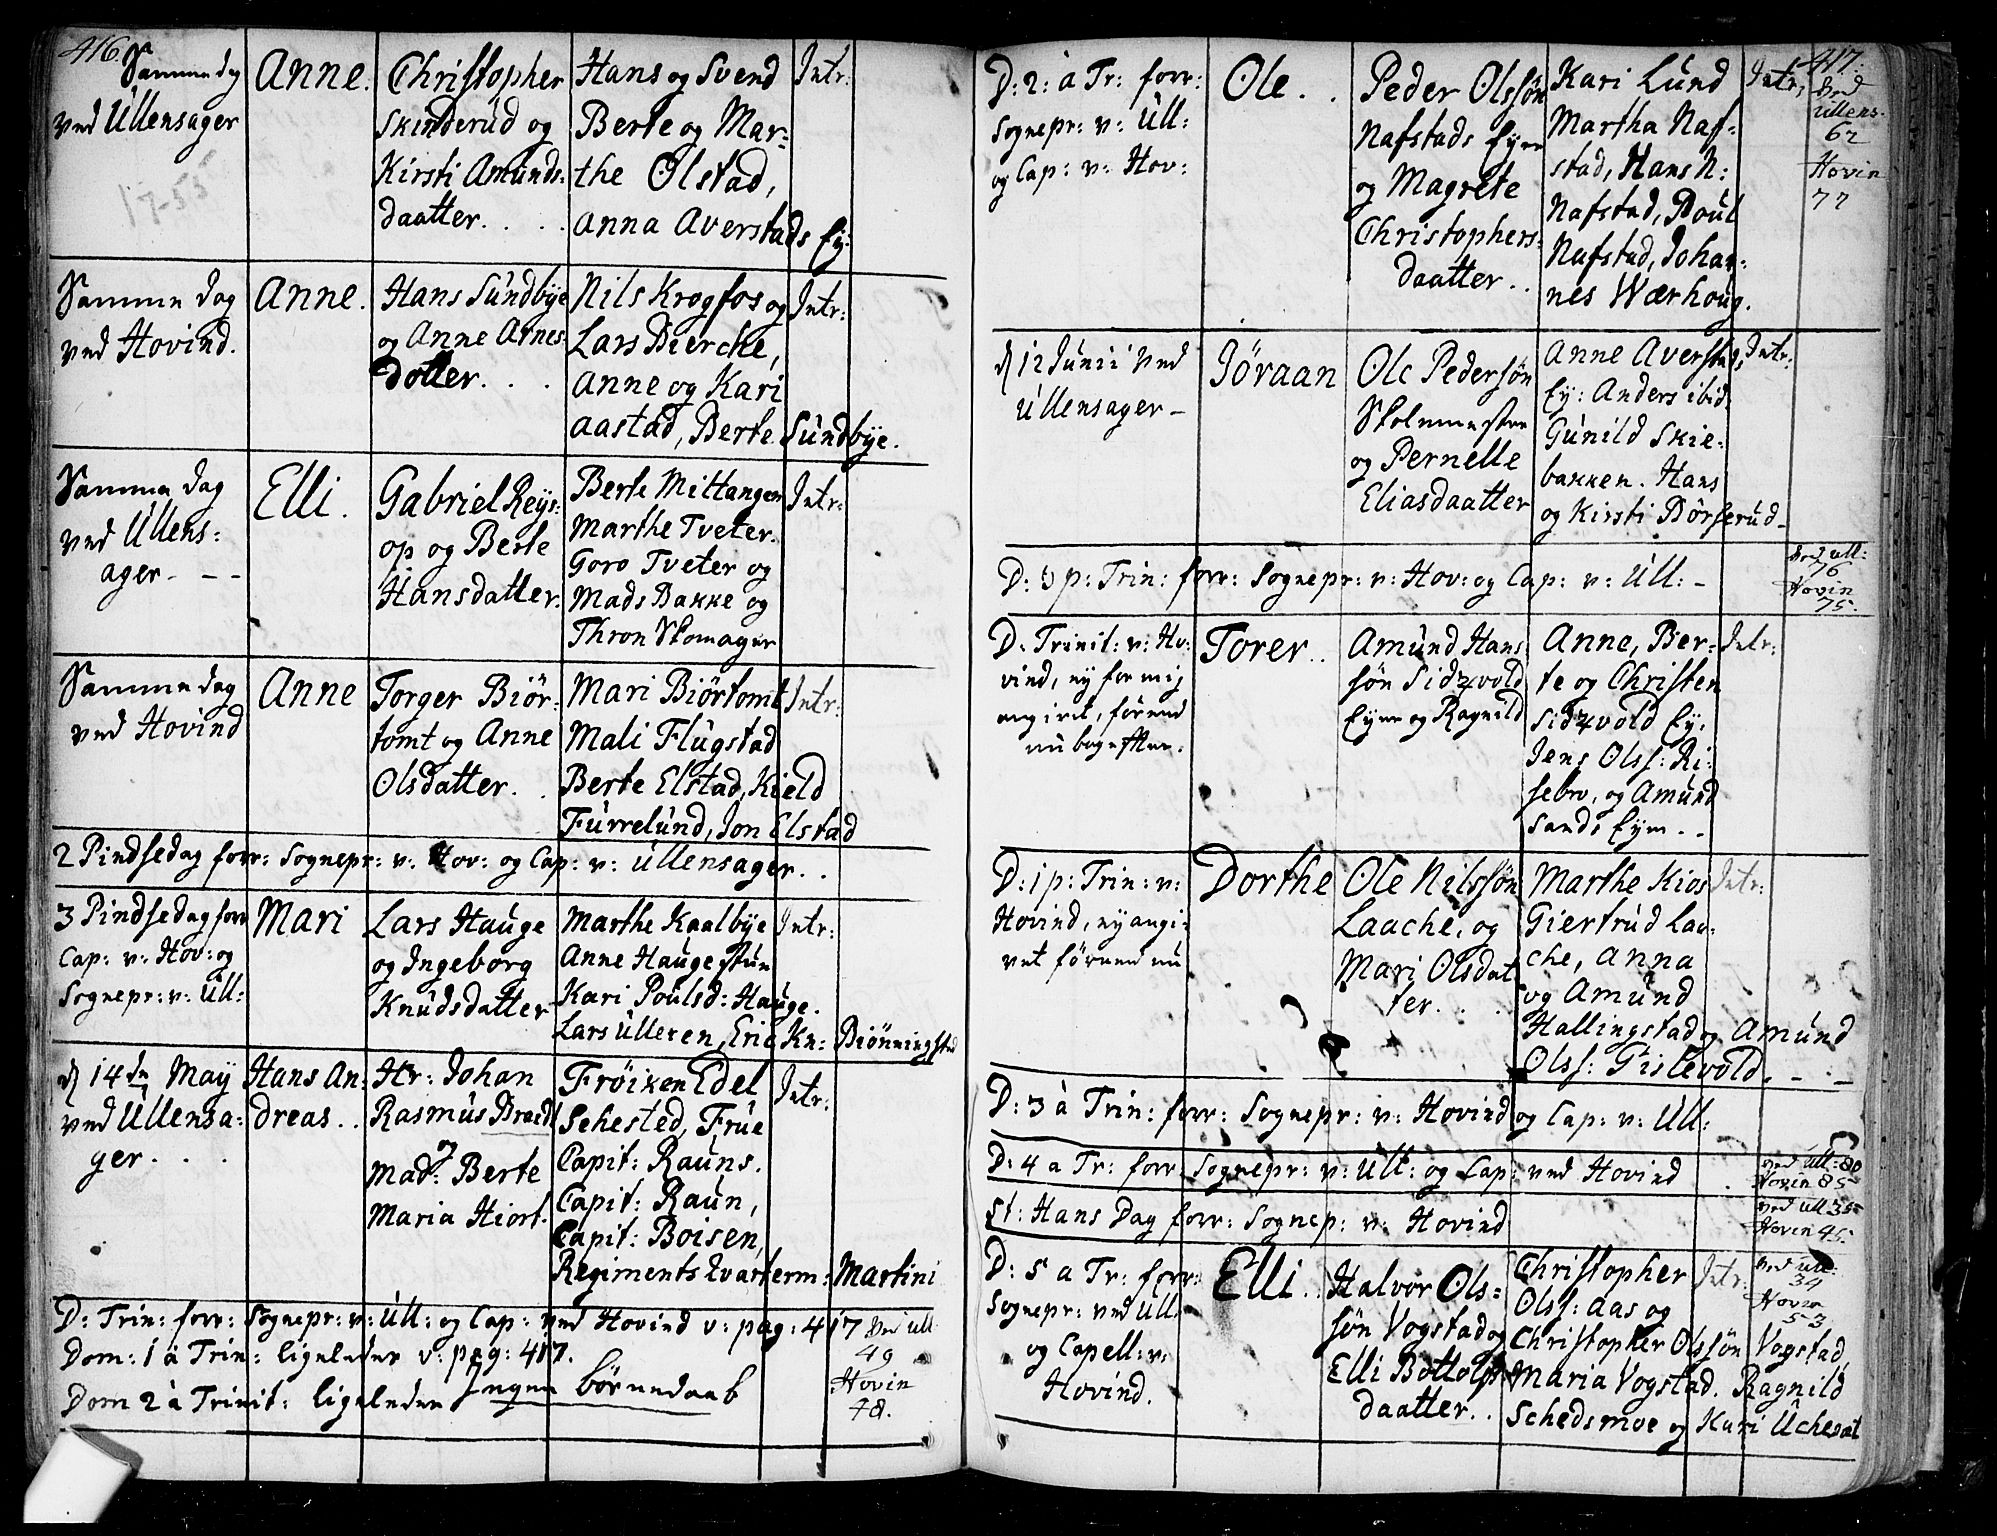 416.
Samme dag
ved Ullensager
17-55
Anne.
Christopher
Skinderud og
Kirsti Amunds-
daatter. . .
Hans og Svend
Berte og Mar-
the Olstad,
Anna Averstads Ey:
Intr:
Samme dag
ved Hovind.
Anne.
Hans Sundbye
og Anne Arnes
dotter. . .
Nils Krogfos og
Lars Bierche,
Anne og Kari
Aastad, Berte Sundbye.
Intr:
Samme dag
ved Ullens:
ager - - -
Elli.
Gabriel Reys:
op og Berte
Hansdatter.
Berte Mittangen
Marthe Tveter.
Goro Tveter og
Mads Bakke og
Thron Skomager
Intr:
Samme dag
ved Hovind
Anne
Torger Biör-
tomt og Anne
Olsdatter. .
Mari Biörtomt
Mali Flugstad
Berte Elstad, Kield
Furrelund, Jon Elstad
Intr:
2 Pindsedag forr: Sognepr: v: Hov: og Cap: v: Ullensager. .
3 Pindsedag forr
Cap: v: Hov: og
Sognepr: v: Ull:
Mari
Lars Hauge
og Ingeborg
Knudsdatter
Marthe Kaalbye
Anne Haugestun
Kari Poulsd: Hauge.
Lars Ulleren, Eric Kn: Biönningstad
Intr:
d 14de May
ved Ullensa:
ger. . .
Hans An-
dreas. .
Hr: Johan
Rasmus Bræd
og
Mad: Berte
Maria Hiort.
Fröiken Edel
Sehested, Frue
Capit: Rauns.
Capit: Raun,
Capit: Boisen,
Regiments Qvarterm: Martini
Intr:
D: Trin: forr: Sognepr: v: Ull: og Cap: ved Hovind v: pag: 417
Dom: 1 à Trin: ligeleder v: pag: 417.
Dom 2 à Trinit: ligeleder Ingen börnedaab
Ved Ull
49
Hovin
48.
417.
D: 2: à Tr: forr:
Sognepr: v: Ull:
og Cap: v: Hov:
Ole. .
Peder Olssön
Nafstads Eyer
og Magrete
Christophers-
daatter. .
Kari Lund
Martha Naf-
stad, Hans N:
Nafstad, Poul
Nafstad, Johan-
nes Wærhoug.
Intr:
Ved
Ullens.
62
Hovin
77
d 12 Junii ved
Ullensager -
Jöraan
Ole Pedersön
Skolemester
og Pernelle
Eliasdaatter
Anne Averstad,
Ey: Anders ibid.
Gunild Skie-
bakken. Hans
og Kirsti Börserud-
Intr:
D: 3 p: Trin: forr: Sognepr: v: Hov: og Cap: v: Ull: -
Ved Ull:
76
Hovin
75.
D: Trinit: v: Ho:
vind, ey for mig
angivet, förend
nu bag efter.
Torer. .
Amund Hans
sön Sidzvold
Eyer og Ragnild
Anne, Ber-
te og Christen
Sidzvold Ey:
Jens Olss: Ri-
sebro, og Amund
Sands Eyer. .
Intr:
D: 1 p: Trin: v:
Hovind, ey angi-
vet förend nu
Dorthe
Ole Nilssön
Laache, og
Mari Olsdat
ter. . .
Marthe Kios
Giertrud Laa-
che, Anna
og Amund
Hallingstad og Amund
Olss: Gislevold. - . -
Intr:
D: 3 à Trin: forr: Sognepr: v: Hovind og Cap: v: Ull:
D: 4 a Tr: forr: Sognepr: v: Ull: og Cap: ved Hovind
ved Ull: 80
Hovin 85
St: Hans Dag forr: Sognep: v: Hovind
ved Ull 35
Hovin 45.
D: 5 a Tr: forr:
Sognepr: ved Ull:
og Capell: v:
Hovind.
Elli. .
Halvor Ols-
sön Vogstad og
Elli Bottolfs
daatter. .
Christopher
Olss: Aas og
Christopher Olssön Vogstad,
Maria Vogstad. Ragnild
Schedsmoe og Kari Uchesæt
Intr:
Ved Ull:
34
Hovin
53